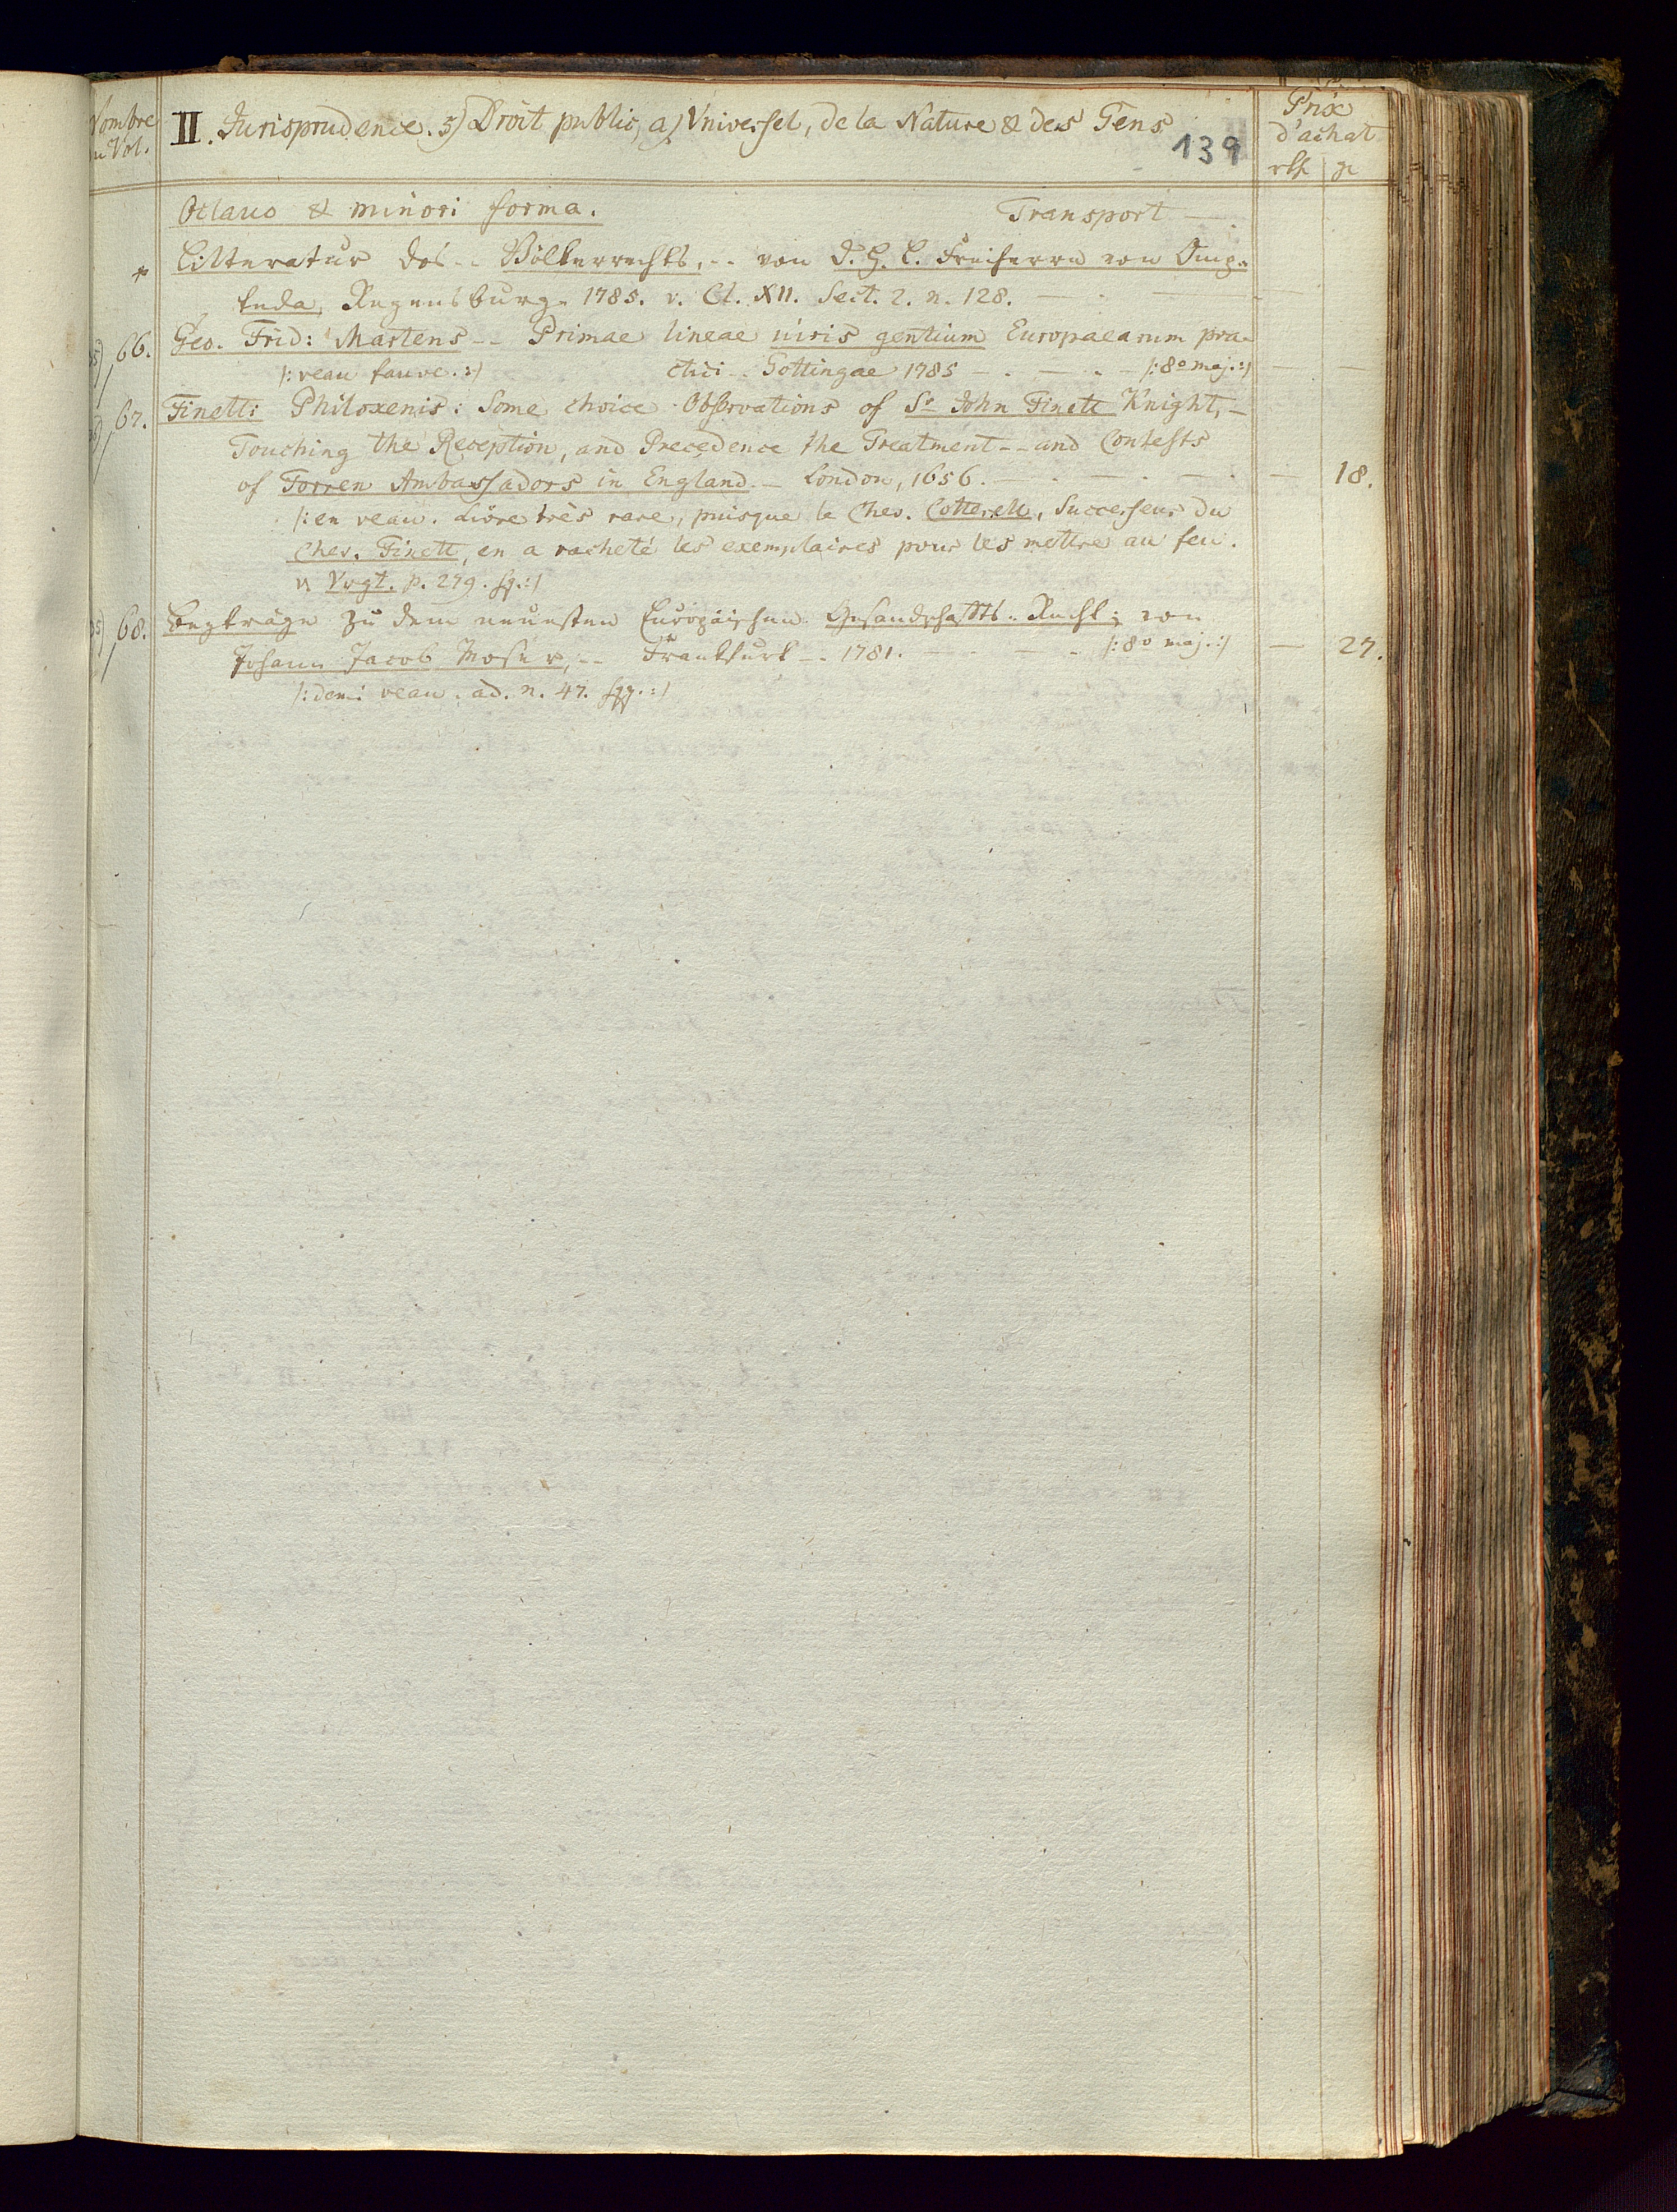 Nombre
du Vol.
II. Jurisprudence. 5) Droit public, a) Vniversel, de la Nature & des Gens
139
Prix
d'achat
rth gr
Octavo & minori forma. Transport —
* Litteratur des -- Völkerrechts, -- von D. H. L. Freiherrn von Omp-
teda, Regensburg 1785. v. Cl. XII. Sect. 2. n. 128. —
66. Geo. Frid: Martens -- Primae lineae iuris gentium Europaearum pra-
/: veau fauve. :/ ctici -- Gottingae 1785 — /: 8º maj. :/ — —
67. Finett: Philoxenis: Some choice Observations of Sr John Finett Knight, —
Touching the Reception, and Precedence the Treatment -- and Contests
of Forren Ambassadors in England. — London, 1656. — — 18.
/: en veau. Livre très rare, puisque le Chev. Cotterell, Successeur du
Chev. Finett, en a racheté les exemplaires pour les mettre au feu.
v. Vogt. p. 279. sq. :/
68. Beyträge zu dem neuesten Europäischen Gesandschaffts-Recht; von
Johann Jacob Moser, -- Frankfurt -- 1781. — /: 8º maj. :/ — 27.
/: demi veau. ad. n. 47. sqq. :/